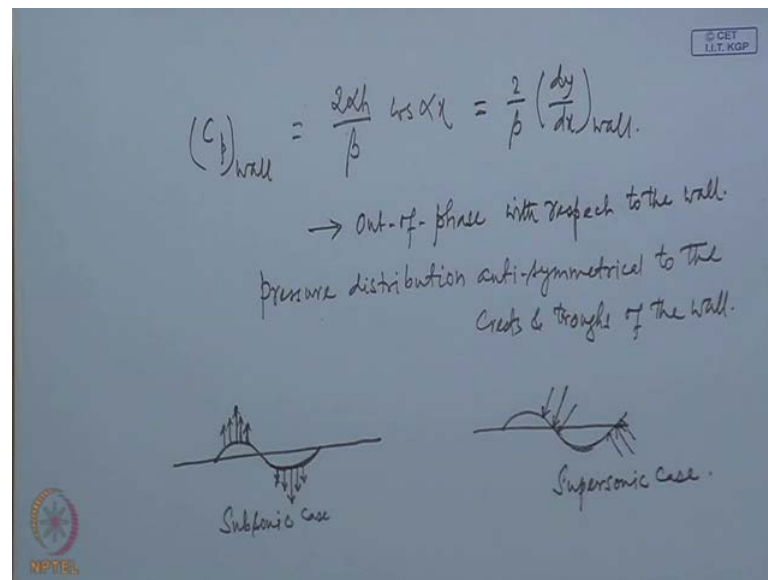 © CET
I.I.T. KGP
(C_p)_wall = 2αh/β cos αx = 2/β (dy/dx)_wall.
→ Out-of-phase with respect to the wall.
pressure distribution anti-symmetrical to the
Crests & troughs of the wall.
Subsonic case
Supersonic case.
NPTEL